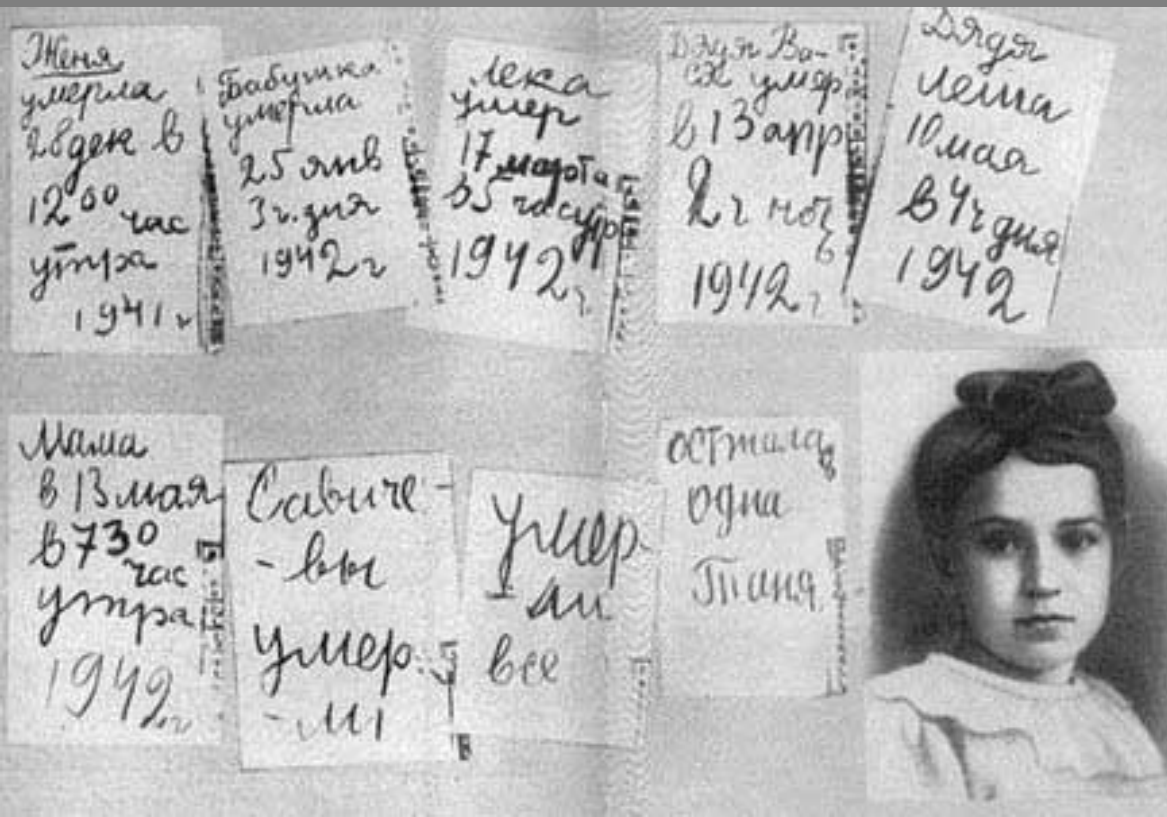 Женя
умерла
28 дек в
12⁰⁰ час
утра
1941 г
Бабушка
умерла
25 янв
3 ч. дня
1942 г
Лека
умер
17 марта
в 5 час утр
1942 г.
Дядя Ва-
ся умер
в 13 апр
2 ч ночь
1942 г
Дядя
Леша
10 мая
в 4 ч дня
1942
Мама
в 13 мая
в 7³⁰ час
утра
1942 г
Савиче-
-вы
умер-
-ли
Умер-
-ли
все
осталась
одна
Таня